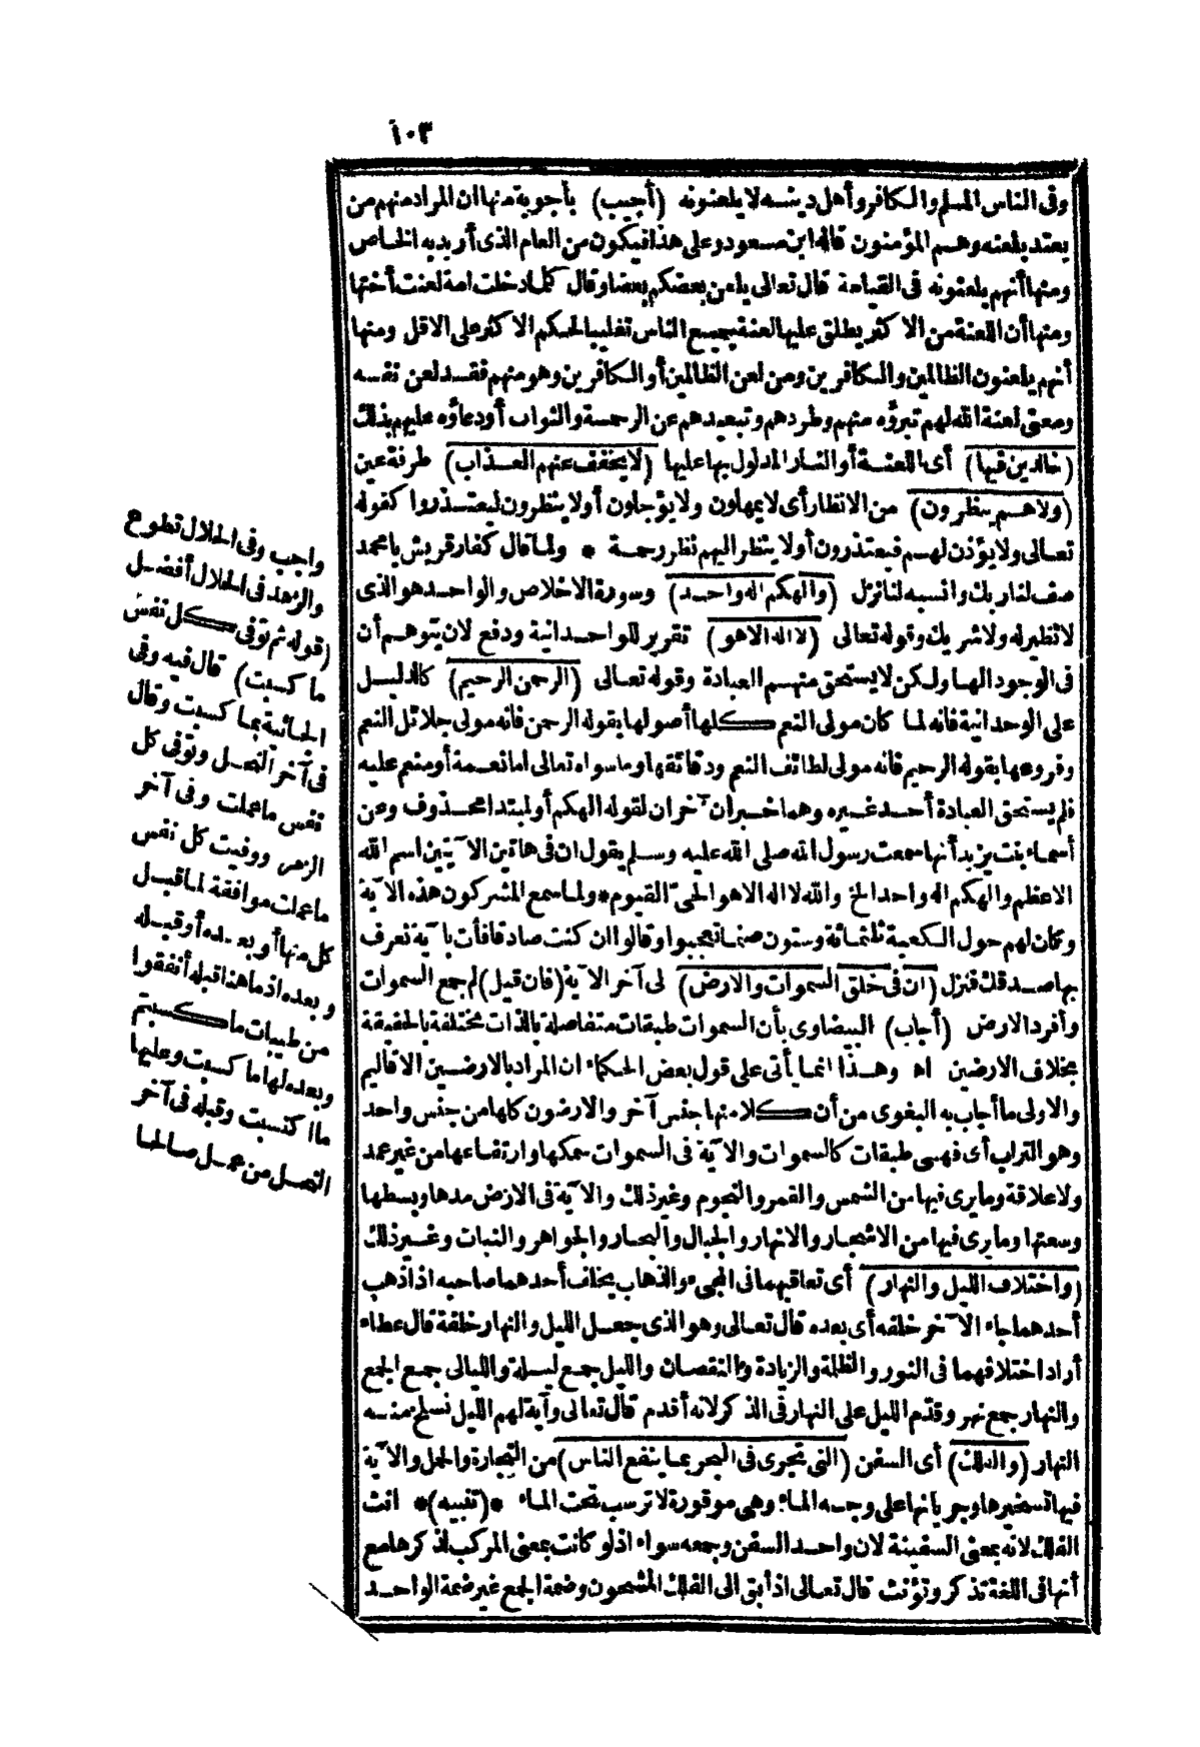 ١٠٣
وفى الناس المسلم والكافر وأهل دينه لا يلعنونه (أجيب) بأجوبة منها ان المراد منهم من
يعتد بلعنه وهم المؤمنون قاله ابن مسعود وعلى هذا فيكون من العام الذى أريد به الخاص
ومنها أنهم يلعنونه فى القيامة قال تعالى يلعن بعضكم بعضا وقال كلما دخلت امة لعنت أختها
ومنها أن اللعنة من الاكثر يطلق عليها لعنة جميع الناس تغليبا لحكم الاكثر على الاقل ومنها
أنهم يلعنون الظالمين والكافرين ومن لعن الظالمين أو الكافرين وهو منهم فقد لعن نفسه
ومعنى لعنة الله لهم تبرؤه منهم وطردهم وتبعيدهم عن الرحمة والثواب أو دعاؤه عليهم بذلك
(خالدين فيها) أى اللعنة أو النار المدلول بها عليها (لا يخفف عنهم العذاب) طرفة عين
(ولاهم ينظرون) من الانظار أى لا يمهلون ولا يؤجلون أو لا ينتظرون ليعتذروا كقوله
تعالى ولا يؤذن لهم فيعتذرون أو لا ينظر اليهم نظر رحمة * ولما قال كفار قريش يا محمد
صف لنا ربك وانسبه لنا نزل (والهكم اله واحد) وسورة الاخلاص والواحد هو الذى
لا نظير له ولا شريك وقوله تعالى (لا اله الا هو) تقرير للوحدانية ودفع لان يتوهم أن
فى الوجود الها ولكن لا يستحق منهم العبادة وقوله تعالى (الرحمن الرحيم) كالدليل
على الوحدانية فانه لما كان مولى النعم كلها أصولها بقوله الرحمن فانه مولى جلائل النعم
وفروعها بقوله الرحيم فانه مولى لطائف النعم ودقائقها وما سواه تعالى اما نعمة أو منعم عليه
فلم يستحق العبادة أحد غيره وهما خبران آخران لقوله الهكم أو لمبتدا محذوف وعن
أسماء بنت يزيد أنها سمعت رسول الله صلى الله عليه وسلم يقول ان فى هاتين الآيتين اسم الله
الاعظم والهكم اله واحد الخ والله لا اله الا هو الحىّ القيوم * ولما سمع المشركون هذه الآية
وكان لهم حول الكعبة ثلثمائة وستون صنما تعجبوا وقالوا ان كنت صادقا فأت بآية نعرف
بها صدقك فنزل (ان فى خلق السموات والارض) لى آخر الآية (فان قيل) لم جمع السموات
وأفرد الارض (أجاب) البيضاوى بأن السموات طبقات متفاصلة بالذات مختلفة بالحقيقة
بخلاف الارضين اه وهذا انما يأتى على قول بعض الحكماء ان المراد بالارضين الاقاليم
والاولى ما أجاب به البغوى من أن كلا منها جنس آخر والارضون كلها من جنس واحد
وهو التراب أى فهى طبقات كالسموات والآية فى السموات سمكها وارتفاعها من غير عمد
ولا علاقة وما يرى فيها من الشمس والقمر والنجوم وغير ذلك والآية فى الارض مدها وبسطها
وسعتها وما يرى فيها من الاشجار والانهار والجبال والبحار والجواهر والنبات وغير ذلك
(واختلاف الليل والنهار) أى تعاقبهما فى المجىء والذهاب يخلف أحدهما صاحبه اذا ذهب
أحدهما جاء الآخر خلفه أى بعده قال تعالى وهو الذى جعل الليل والنهار خلفة قال عطاء
أراد اختلافهما فى النور والظلمة والزيادة والنقصان والليل جمع ليلة والليالى جمع الجمع
والنهار جمع نهر وقدّم الليل على النهار فى الذكر لانه أقدم قال تعالى وآية لهم الليل نسلخ منه
النهار (والفلك) أى السفن (التى تجرى فى البحر بما ينفع الناس) من التجارة والحمل والآية
فيها تسخيرها وجريانها على وجه الماء وهى موقورة لا ترسب تحت الماء *(تنبيه)* انث
الفلك لانه بمعنى السفينة لان واحد السفن وجمعه سواء اذ لو كانت بمعنى المركب لذكرها مع
أنها فى اللغة تذكر وتؤنث قال تعالى اذ أبق الى الفلك المشحون وضمة الجمع غير ضمة الواحد
واجب وفى الحلال تطوع
والزهد فى الحلال أفضل
(قوله ثم توفى كل نفس
ما كسبت) قال فيه وفى
الجاثية بما كسبت وقال
فى آخر النحل وتوفى كل
نفس ما عملت وفى آخر
الزمر ووفيت كل نفس
ما عملت موافقة لما قبل
كل منها أو بعده أو قبله
وبعده اذ ما هنا قبله أنفقوا
من طيبات ما كسبتم
وبعده لها ما كسبت وعليها
ما اكتسبت وقبله فى آخر
النحل من عمل صالحا